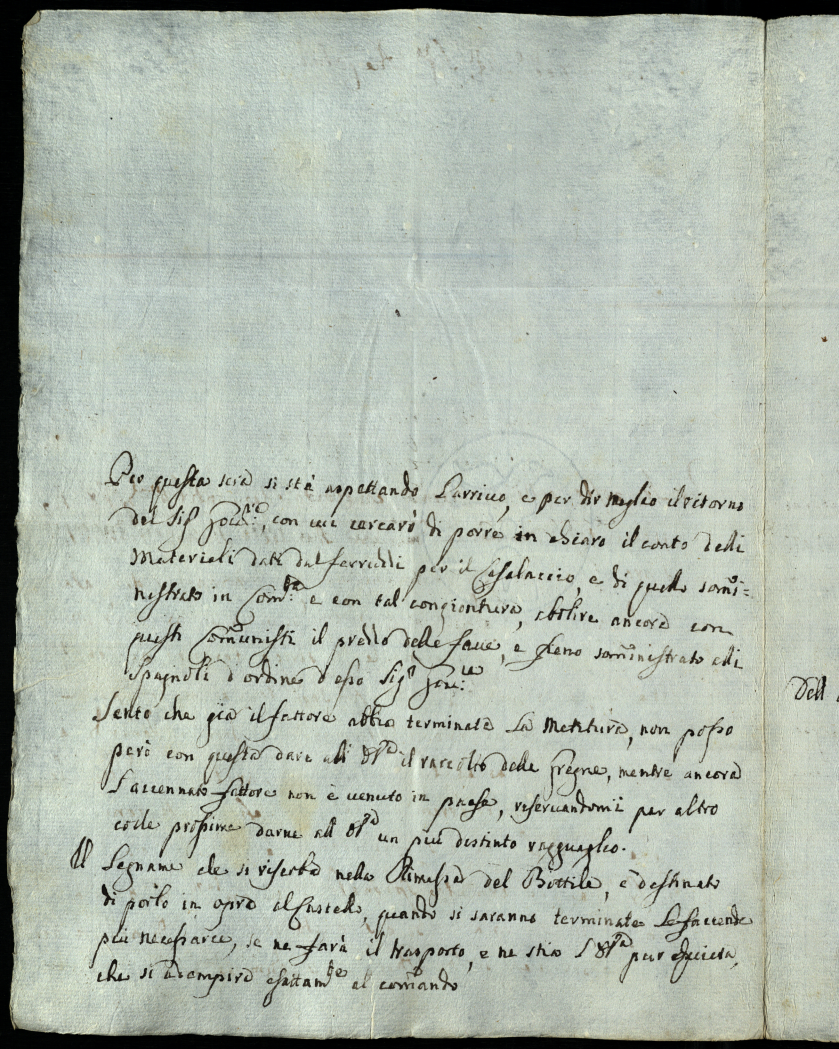 Per questa sera si stà aspettando l'arrivo, e per dir meglio il ritorno
del Sig.r, con cui cercarò di porre in chiaro il conto delli
Materiali dati dal Ferruzzi per il Casalaccio, e di quello som̃i=
nistrato in Com.tà e con tal congiontura, abolire ancora con
questi Com̃unisti il prezzo delle fave, e fieno som̃inistrato alli
Spagnoli d'ordine d'esso Sig.r
Sento che già il fattore abbia terminata la Metitura, non posso
però con questa dare all' il raccolto delle gregne, mentre ancora
l'accennato fattore non è venuto in paese, riservandomi per altro
colle prossime darne all' un più distinto ragguaglio.
Il Legname che si riserba nella Rimessa del Bottile, è destinato
di porlo in opra al Castello, quando si saranno terminate le faccende
più necessarie, se ne farà il trasporto, e ne stia pur quieta,
che si adempirà esattam.te al comando
Dell